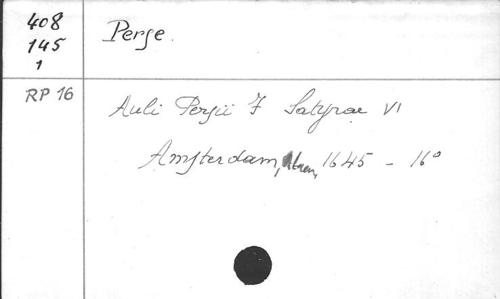 408
145
1
Perse.
RP 16
Auli Persii F Satyrae VI
Amsterdam, 1645 - 16°